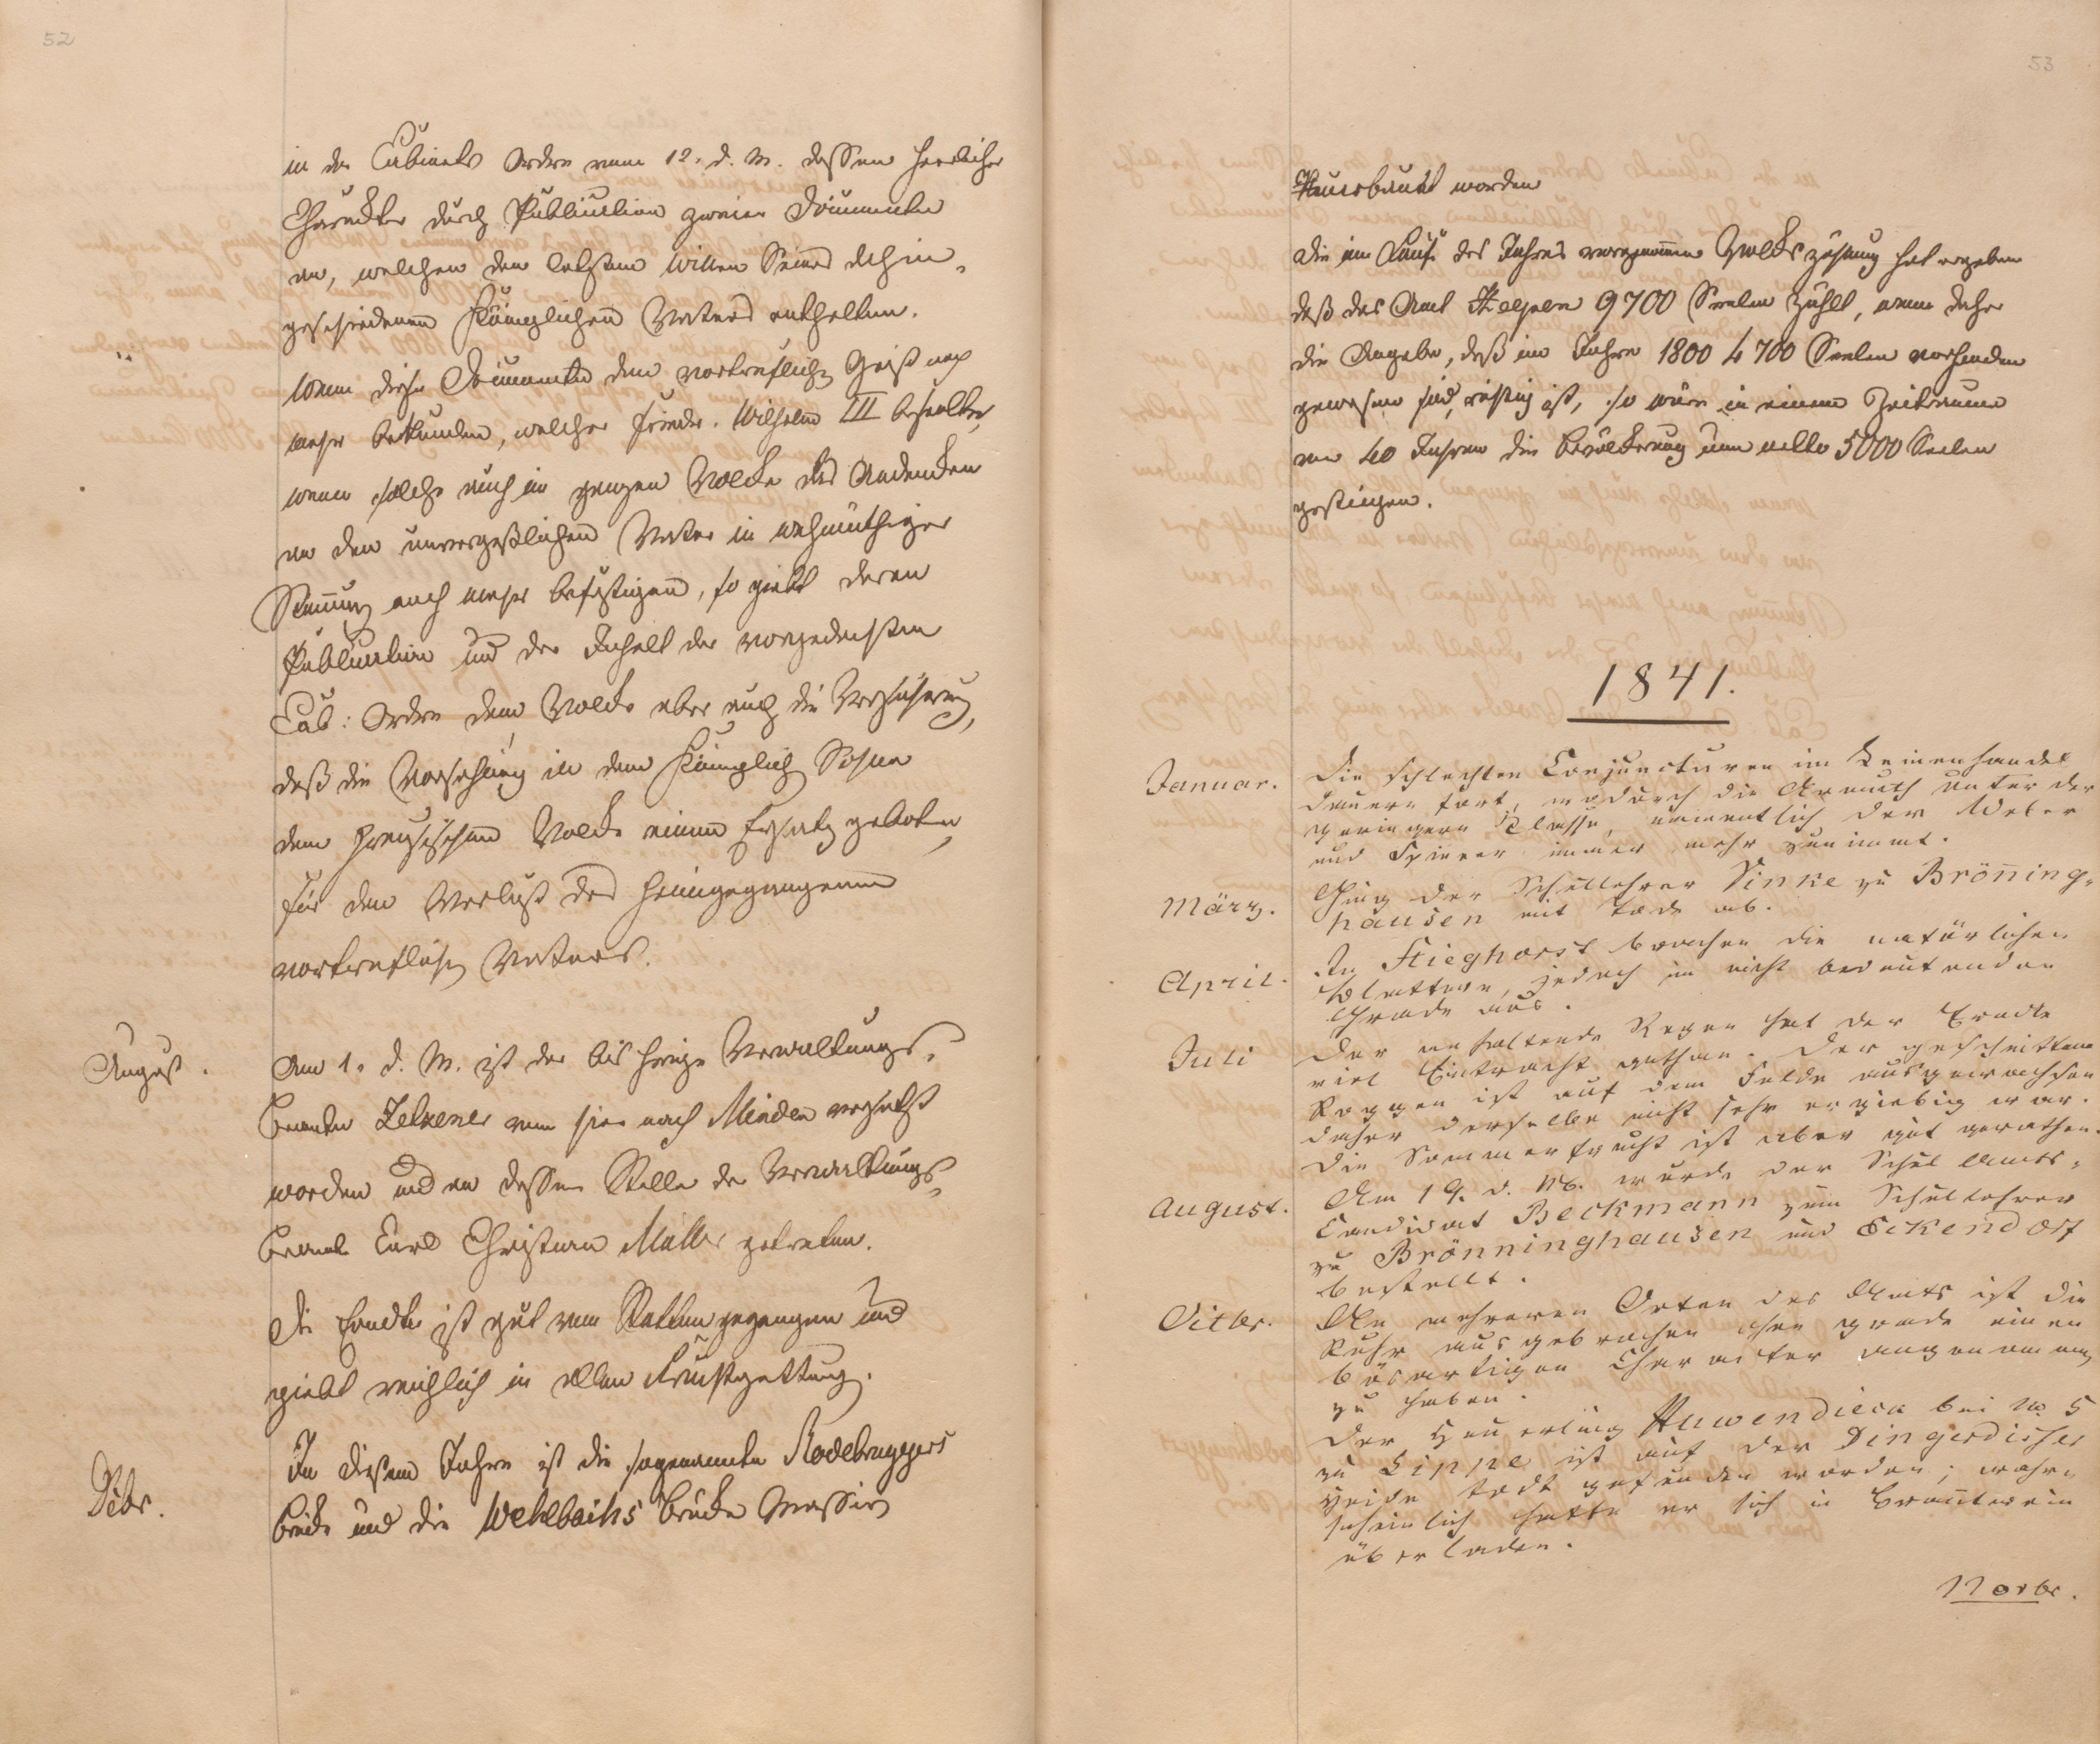 52
in der Cabinets Ordre vom 12. d. M. dessen herrlicher
Charakter durch Publication zweier Documente
an, welchen den letzten Willen Seines dahin„
geschiedenen Königlichen Vaters enthalten.
Wenn diese Documente den vortreflichen Geist noch
mehr bekunden, welcher Friedr. Wilhelm III beseelte,
wenn solche auch im ganzen Volke das Andenken
an den unvergeßlichen Vater in wehmüthiger
Stimung noch mehr befestigen, so giebt deren
Publication und der Inhalt der vorgedachten
Cab: Ordre dem Volke aber auch die Versicherung,
daß die Vorsehung in dem Königlichen Sohne
dem preusischen Volke einen Ersatz geboten,
für den Verlust des heimgegangenen
vortreflichen Vaters.
August.
Am 1. d. M. ist der bisherige Verwaltungs„
beamte Zelzener von hier nach Minden versetzt
worden und an dessen Stelle der Verwaltungs„
beamte Carl Christian Müller getreten.
Die Erndte ist gut von Statten gegangen und
giebt reichlich in allen Fruchtgattung.
Dcbr.
In diesem Jahre ist die sogenannte Radebruggers
brücke und die Wehlbachs brücke Massiv
53
worden
Die im Laufe des Jahres vorgenommene Volkszählung hat ergeben
daß das Amt Heepen 9700 Seelen zählt, wenn daher
die Angabe, daß im Jahre 1800 4700 Seelen vorhanden
gewesen sind, richtig ist, so wäre in einem Zeitraume
von 40 Jahren die Bevölkerung um volle 5000 Seelen
gestiegen.
1841.
Januar.
Die schlechten Conjuncturen im Leinenhandel
dauern fort, wodurch die Armuth unter der
geringern Klasse, namentlich der Weber
und Spinner immer mehr zunimmt.
März.
Ging der Schullehrer Sinke zu Bröning„
hausen mit Tode ab.
April.
In Stieghorst brachen die natürlichen
Blattern, jedoch im nicht bedeutenden
Grade aus.
Juli
Der anhaltende Regen hat der Erndte
viel Eintracht gethan. Der geschnittene
Roggen ist auf dem Felde ausgewachsen
daher derselbe nicht sehr ergiebig war.
Die Sommerfrucht ist aber gut gerathen.
August.
Am 19. d. Mts. wurde der Schul Amts„
Candidat Beckmann zum Schullehrer
zu Brönninghausen und Eckendorf
bestellt.
Octbr.
An mehreren Orten des Amts ist die
Ruhr ausgebrochen ohne grade einen
bösartigen Character angenommen
zu haben.
Der Heuerling Auwendieck bei No 5
zu Lippe ist auf der Dingerdisser
Heide todt gefunden worden; wahr„
scheinlich hatte er sich in Branntwein
überladen.
Novbr.